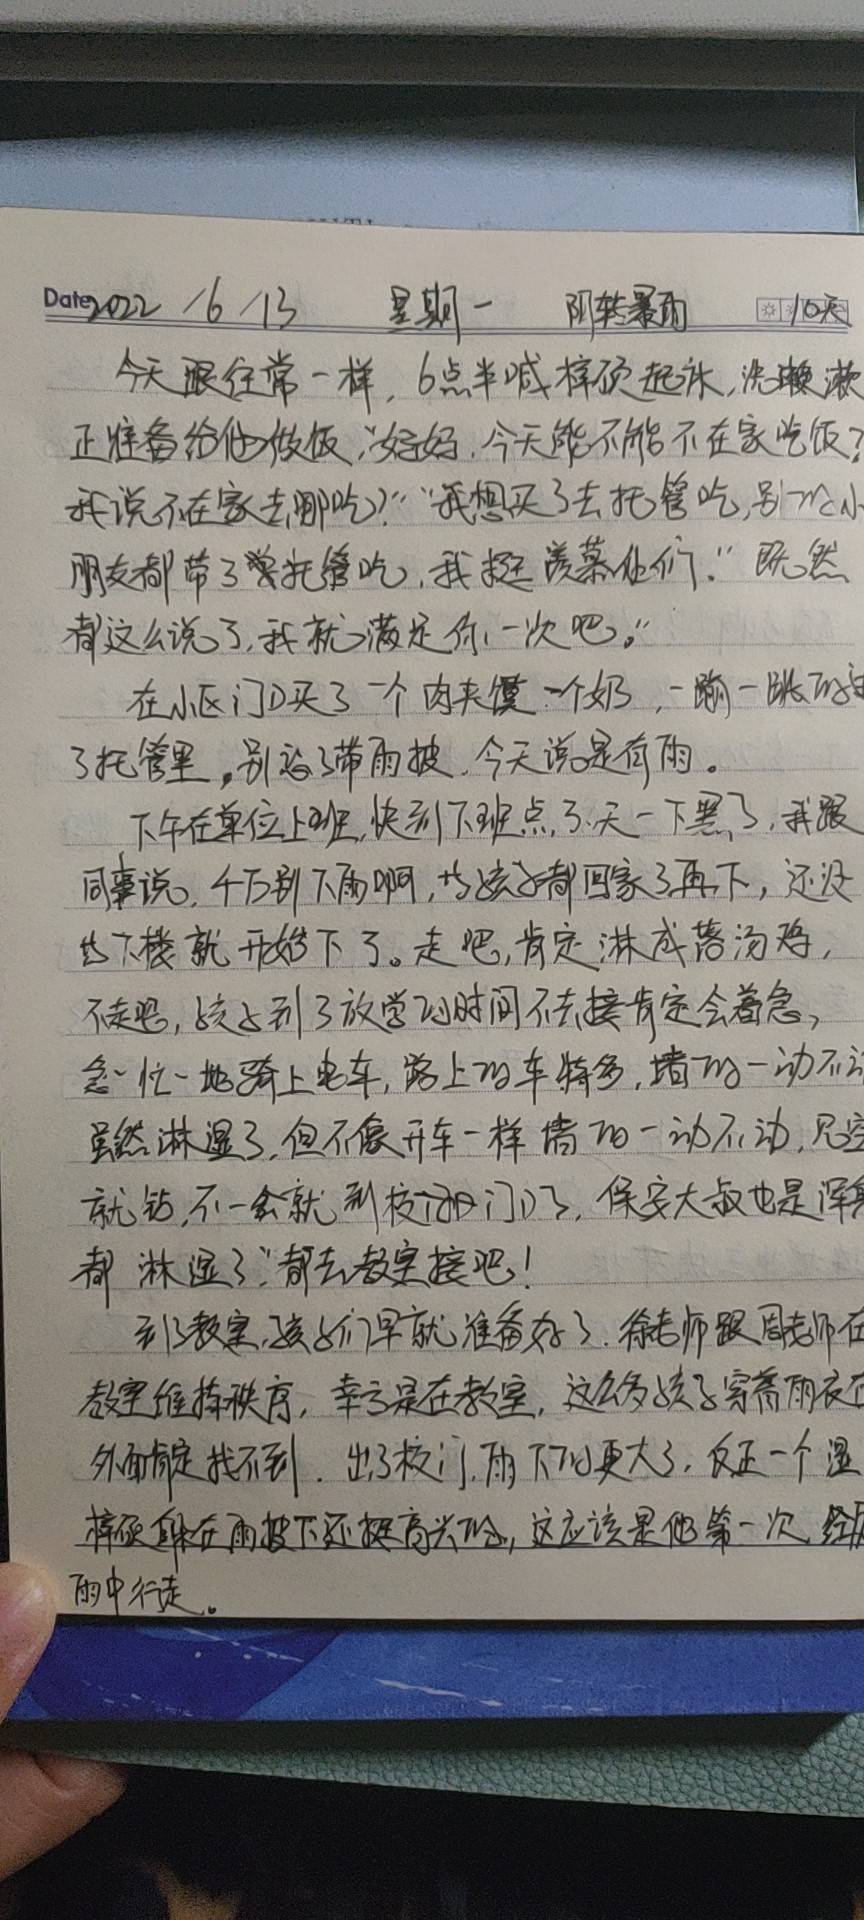 Date 2022/6/13 星期一 阴转暴雨 10天
今天跟往常一样,6点半喊梓硕起床,洗漱
正准备给他做饭,"妈妈,今天能不能不在家吃饭?
我说不在家去哪吃?""我想买了去托管吃,别的小
朋友都带了去托管吃,我挺羡慕他们。"既然
都这么说了,我就满足你一次吧。"
在小区门口买了一个肉夹馍一个奶,一蹦一跳的
了托管里。别忘了带雨披,今天说是有雨。
下午在单位上班,快到下班点了,天一下黑了,我跟
同事说,千万别下雨啊,等孩子都回家了再下,还没
等下楼就开始下了。走吧,肯定淋成落汤鸡,
不走吧,孩子到了放学的时间不去接肯定会着急,
急忙忙地骑上电车,路上的车特多,堵的一动不动
虽然淋湿了,但不像开车一样堵的一动不动,见空
就钻,不一会就到校门口了,保安大叔也是浑身
都淋湿了:"都去教室接吧!
到了教室,孩子们早就准备好了,徐老师跟周老师在
教室维持秩序,幸亏是在教室,这么多孩子穿着雨衣在
外面肯定找不到,出了校门,雨下的更大了,反正一个湿
梓硕躲在雨披下还挺高兴的,这应该是他第一次经历
雨中行走。